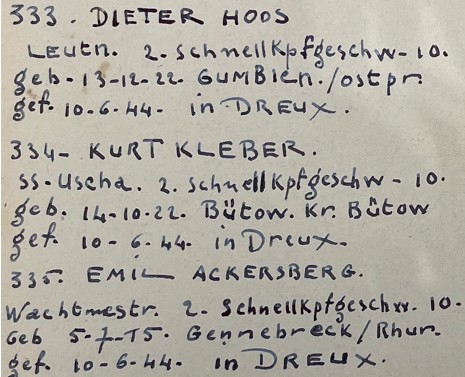 333. DIETER HOOS
Leutn. 2. Schnellkpfgeschw-10.
geb-13-12-22. GUMBIEN./ostpr.
gef. 10-6-44. in DREUX.
334- KURT KLEBER.
ss-Uscha. 2. Schnellkpfgeschw-10.
geb. 14-10-22. Bütow. Kr. Bütow
gef. 10-6-44. in Dreux.
335. EMIL ACKERSBERG.
Wachtmestr. 2. Schnellkpfgeschw. 10.
Geb 5-7-15. Gennebreck/Rhur.
gef. 10-6-44. in DREUX.